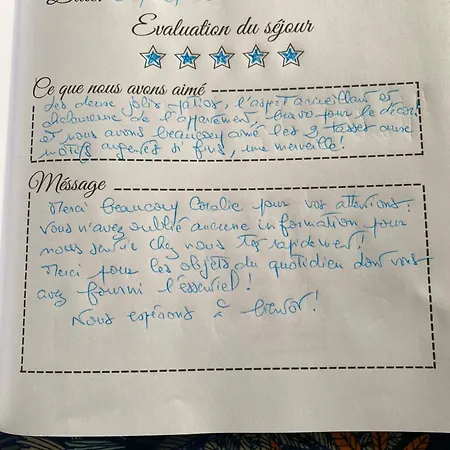 Evaluation du séjour
Ce que nous avons aimé
des deux jolis patios, l'aspect accueillant et
chaleureux de l'appartement, bravo pour le décor
et nous avons beaucoup aimé les 2 tasses aux
motifs argentés si fins, une merveille!
Méssage
Merci beaucoup Coralie pour vos attentions.
Vous n'avez oublié aucune information pour
nous sentir chez nous très rapidement!
Merci pour les objets du quotidien dont vous
avez fourni l'essentiel!
Nous espérons à bientôt!